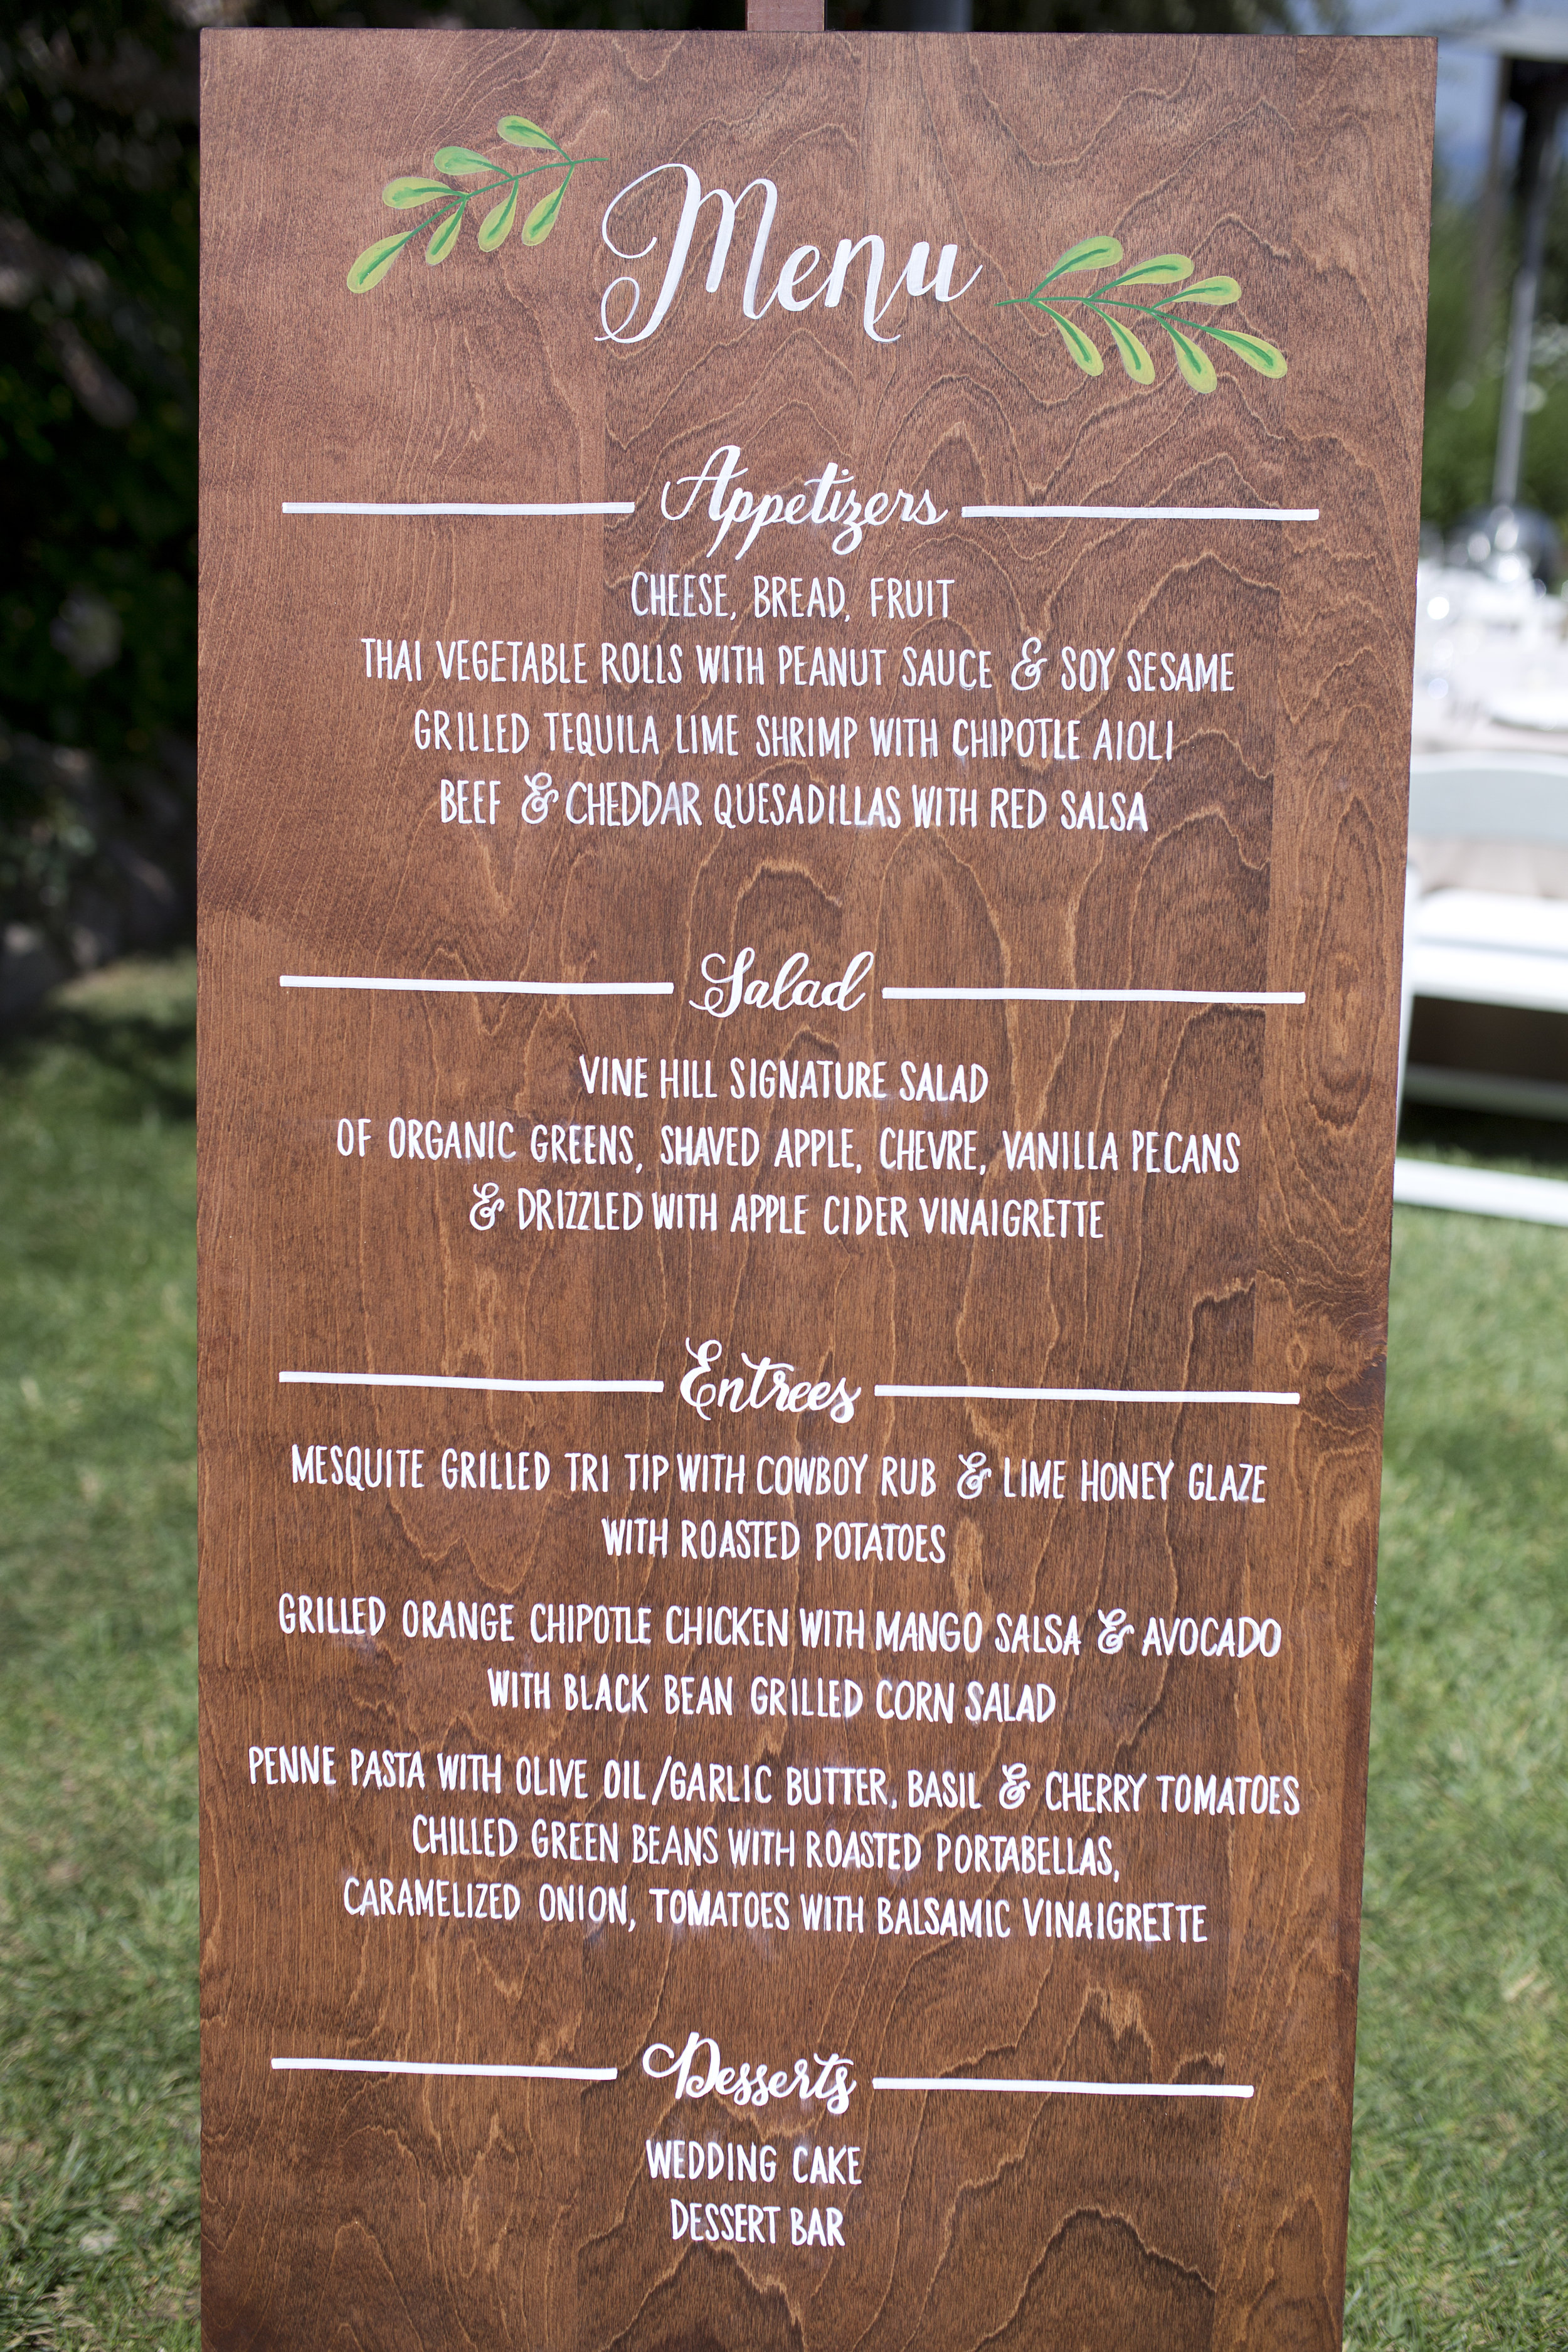 Menu
Appetizers
CHEESE, BREAD, FRUIT
THAI VEGETABLE ROLLS WITH PEANUT SAUCE & SOY SESAME
GRILLED TEQUILA LIME SHRIMP WITH CHIPOTLE AIOLI
BEEF & CHEDDAR QUESADILLAS WITH RED SALSA
Salad
VINE HILL SIGNATURE SALAD
OF ORGANIC GREENS, SHAVED APPLE, CHEVRE, VANILLA PECANS
& DRIZZLED WITH APPLE CIDER VINAIGRETTE
Entrees
MESQUITE GRILLED TRI TIP WITH COWBOY RUB & LIME HONEY GLAZE
WITH ROASTED POTATOES
GRILLED ORANGE CHIPOTLE CHICKEN WITH MANGO SALSA & AVOCADO
WITH BLACK BEAN GRILLED CORN SALAD
PENNE PASTA WITH OLIVE OIL/GARLIC BUTTER, BASIL & CHERRY TOMATOES
CHILLED GREEN BEANS WITH ROASTED PORTABELLAS,
CARAMELIZED ONION, TOMATOES WITH BALSAMIC VINAIGRETTE
Desserts
WEDDING CAKE
DESSERT BAR